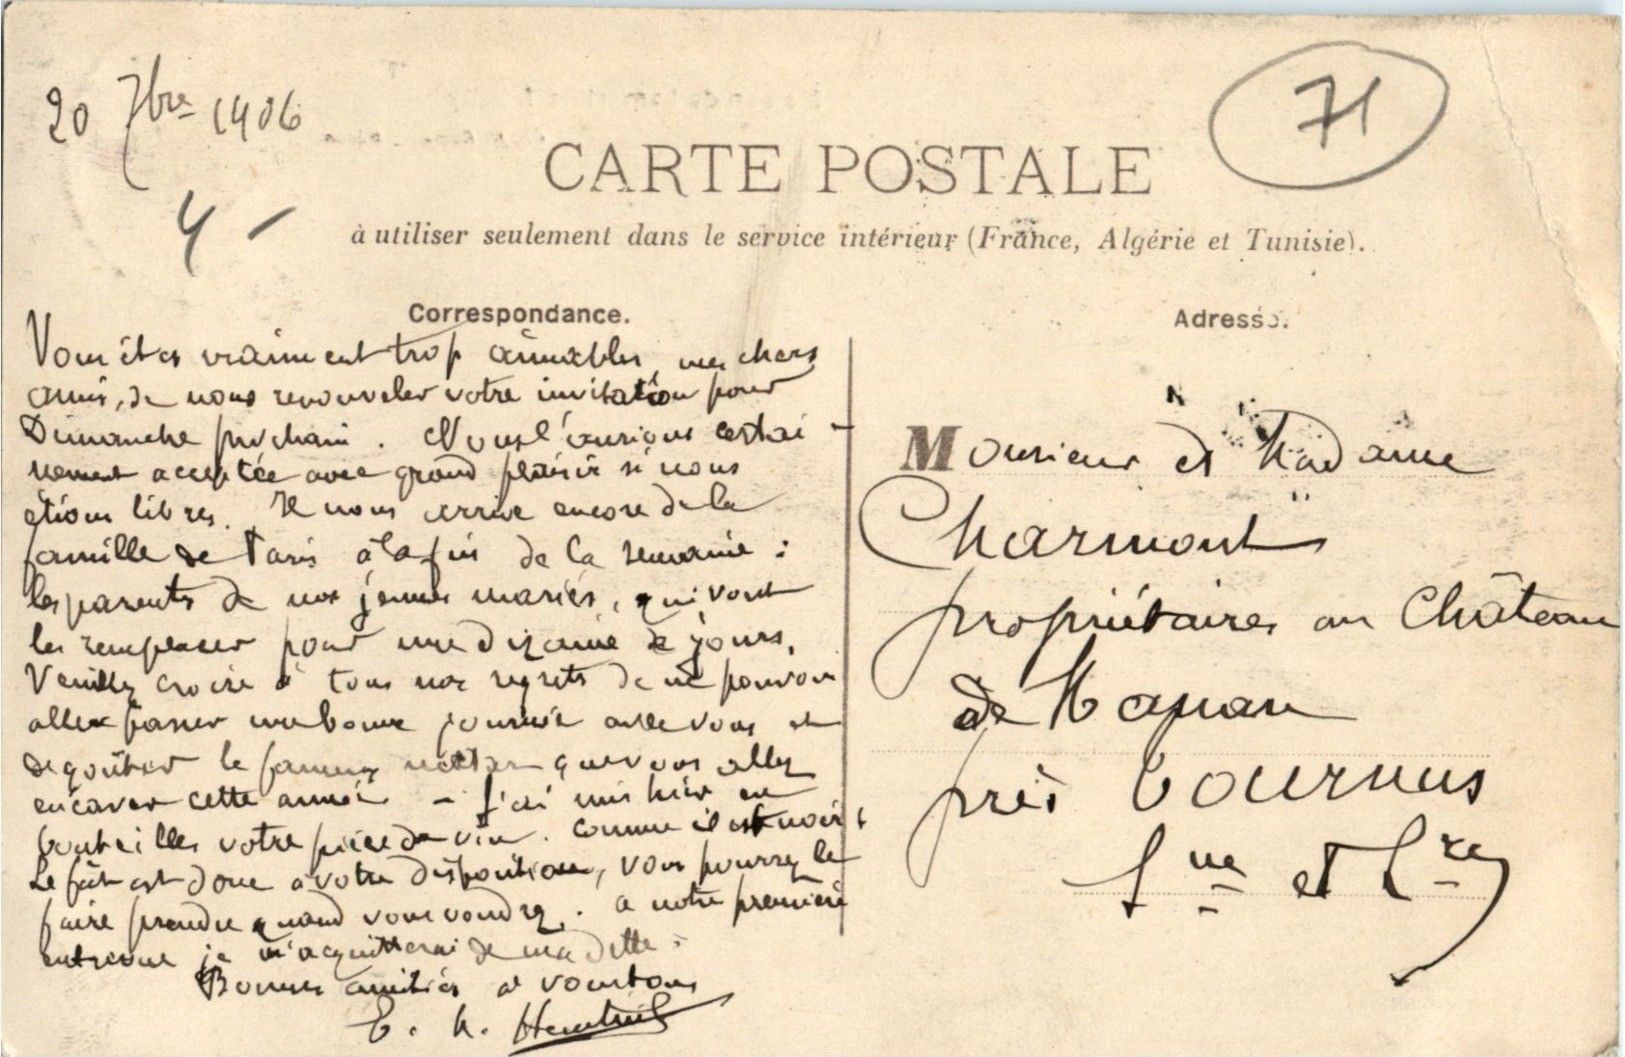 20 7bre 1906
71
4 -
CARTE POSTALE
à utiliser seulement dans le service intérieur (France, Algérie et Tunisie).
Correspondance.
Vous êtes vraiment trop aimables, mes chers
amis, de nous renouveler votre invitation pour
Dimanche prochain. Nous l'aurions certai-
nement acceptée avec grand plaisir si nous
étions libres. Il nous arrive encore de la
famille de Paris à la fin de la semaine :
les parents de nos jeunes mariés, qui vont
les remplacer pour une dizaine de jours.
Veuillez croire à tous nos regrets de ne pouvoir
aller passer une bonne journée avec vous et
de goûter le fameux nectar que vous allez
encaver cette année - J'ai mis hier en
bouteilles votre pièce de vin. Comme il est noir !
Le fût est donc à votre disposition, vous pourrez le
faire prendre quand vous voudrez. A notre première
entrevue je m'acquitterai de ma dette.
Bonnes amitiés à vous tous
E. H.
Adresse.
Monsieur et Madame
Charmont
propriétaires au Château
de
près Tournus
Sne et Lre